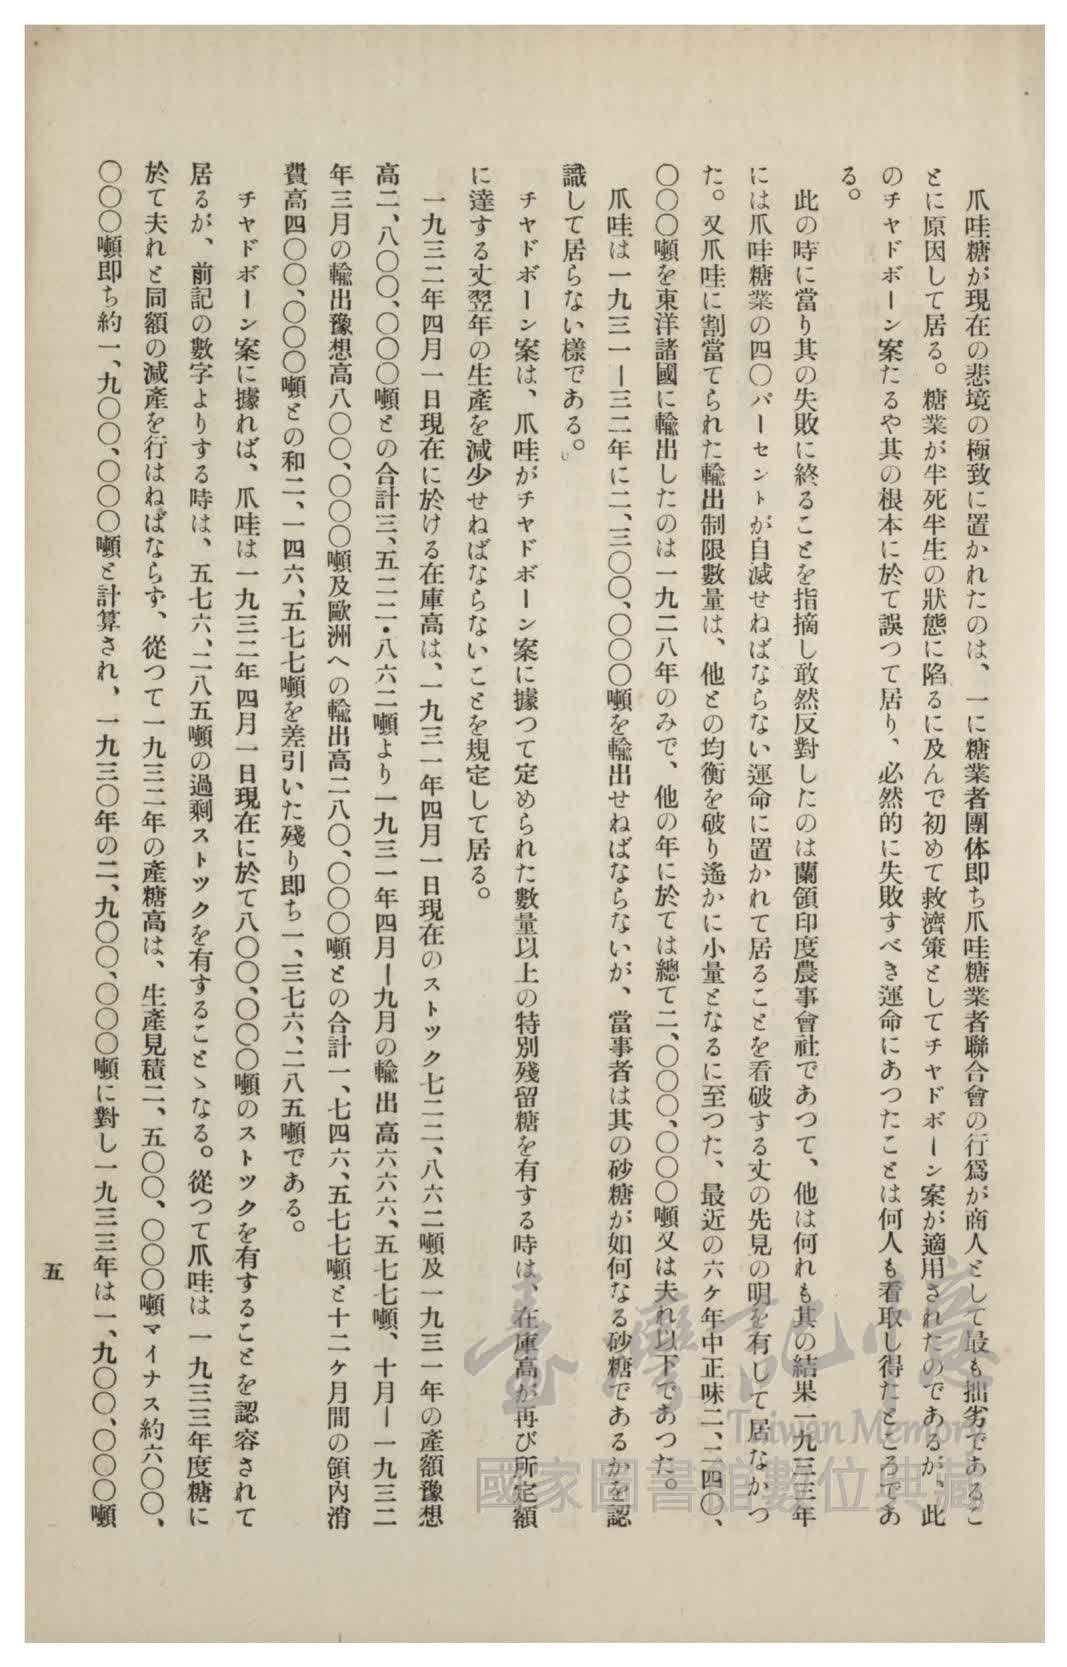 爪哇糖が現在の悲境の極致に置かれたのは、一に糖業者團体即ち爪哇糖業者聯合會の行爲が商人として最も拙劣であるこ
とに原因して居る。糖業が半死半生の狀態に陷るに及んで初めて救濟策としてチヤドボーン案が適用されたのであるが、此
のチヤドボーン案たるや其の根本に於て誤つて居り、必然的に失敗すべき運命にあつたことは何人も看取し得たところであ
る。
此の時に當り其の失敗に終ることを指摘し敢然反對したのは蘭領印度農事會社であつて、他は何れも其の結果一九三三年
には爪哇糖業の四〇パーセントが自滅せねばならない運命に置かれて居ることを看破する丈の先見の明を有して居なかつ
た。又爪哇に割當てられた輸出制限數量は、他との均衡を破り遙かに小量となるに至つた、最近の六ケ年中正味二、二四〇、
〇〇〇噸を東洋諸國に輸出したのは一九二八年のみで、他の年に於ては總て二、〇〇〇、〇〇〇噸又は夫れ以下であつた。
爪哇は一九三一―三二年に二、三〇〇、〇〇〇噸を輸出せねばならないが、當事者は其の砂糖が如何なる砂糖であるかを認
識して居らない樣である。
チヤドボーン案は、爪哇がチヤドボーン案に據つて定められた數量以上の特別殘留糖を有する時は、在庫高が再び所定額
に達する丈翌年の生產を減少せねばならないことを規定して居る。
一九三二年四月一日現在に於ける在庫高は、一九三一年四月一日現在のストツク七二二、八六二噸及一九三一年の產額豫想
高二、八〇〇、〇〇〇噸との合計三、五二二・八六二噸より一九三一年四月―九月の輸出高六六六、五七七噸、十月―一九三二
年三月の輸出豫想高八〇〇、〇〇〇噸及歐洲への輸出高二八〇、〇〇〇噸との合計一、七四六、五七七噸と十二ケ月間の領內消
費高四〇〇、〇〇〇噸との和二、一四六、五七七噸を差引いた殘り即ち一、三七六、二八五噸である。
チヤドボーン案に據れば、爪哇は一九三二年四月一日現在に於て八〇〇、〇〇〇噸のストツクを有することを認容されて
居るが、前記の數字よりする時は、五七六、二八五噸の過剩ストツクを有することゝなる。從つて爪哇は一九三三年度糖に
於て夫れと同額の減產を行はねばならず、從つて一九三二年の產糖高は、生產見積二、五〇〇、〇〇〇噸マイナス約六〇〇、
〇〇〇噸即ち約一、九〇〇、〇〇〇噸と計算され、一九三〇年の二、九〇〇、〇〇〇噸に對し一九三三年は一、九〇〇、〇〇〇噸
五
臺灣記憶
Taiwan Memory
國家圖書館數位典藏